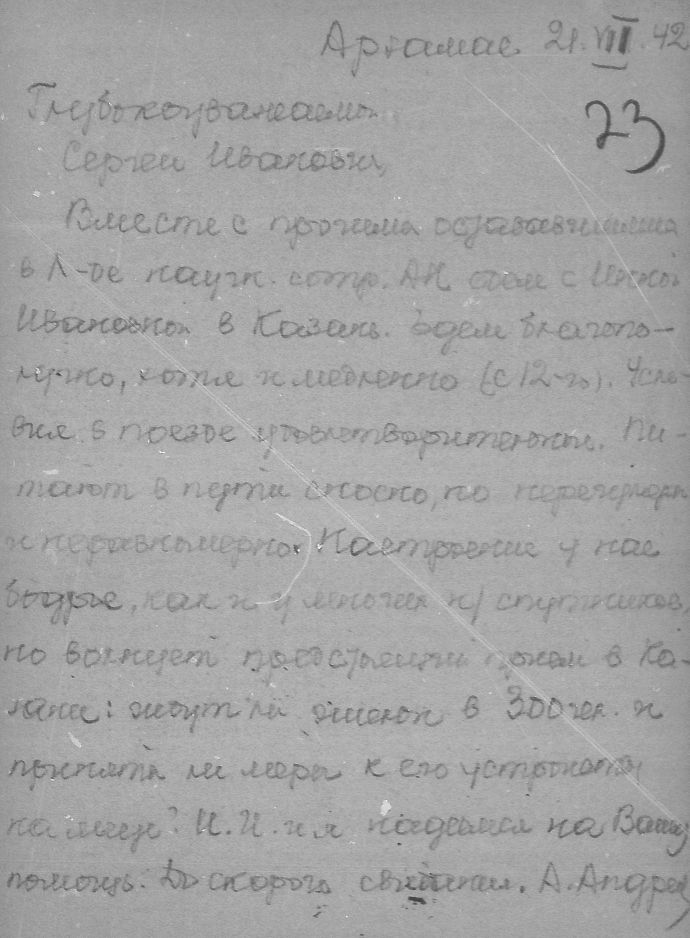 Арзамас 21.VIII.42
23
Глубокоуважаемый
Сергей Иванович,
Вместе с прочими остававшимися
в Л-де научн. сотр. АН едем с Инной
Ивановной в Казань. Едем благопо-
лучно, хотя и медленно (с 12-го). Усло-
вия в поезде удовлетворительные. Пи-
тают в пути сносно, но нерегулярн
и неравномерно. Настроение у нас
бодрое, как и у многих н/ спутников,
но волнует предстоящий в Ка-
зани: ждут ли в Зоол. и
приняты ли меры к его устр
на месте? И.И. и я надеемся на Вашу
помощь. До скорого свидания. А. Андрее